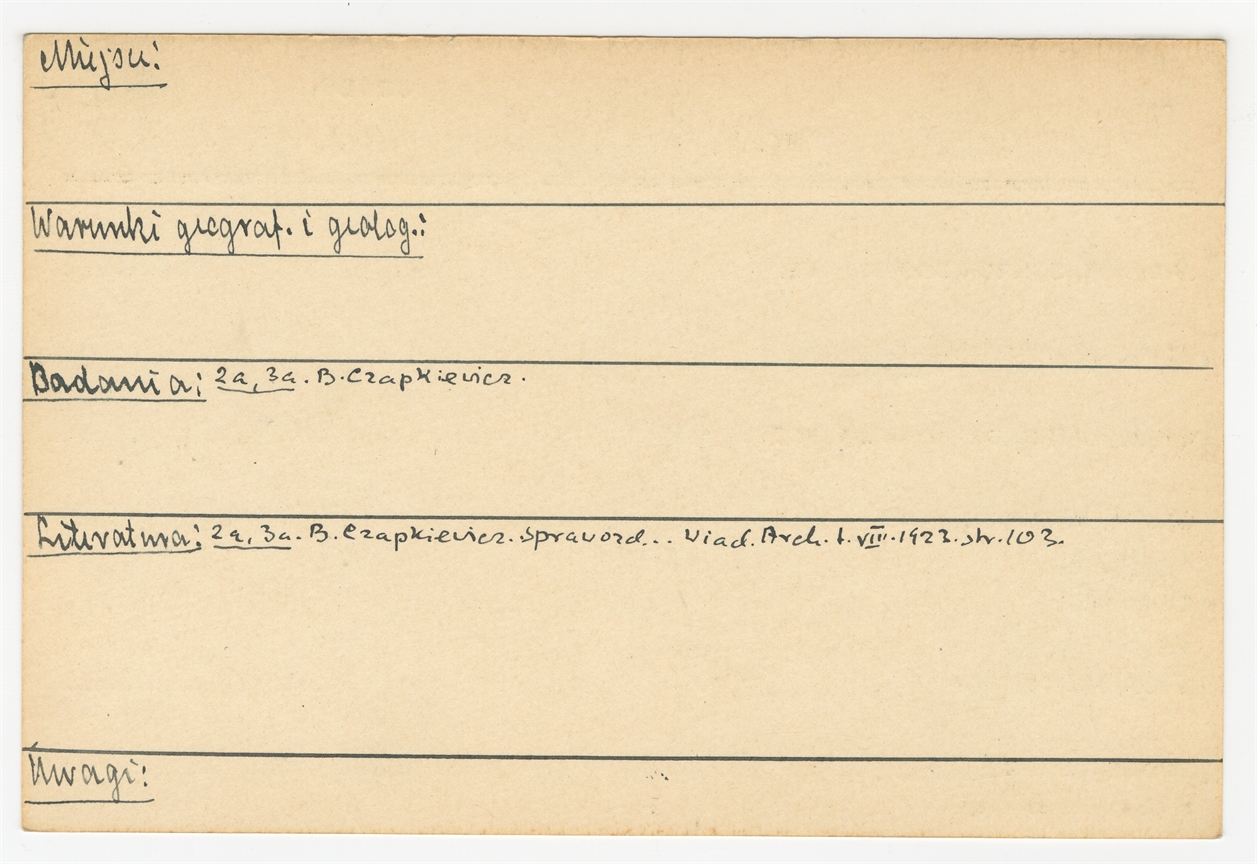 Miejsce:
Warunki geograf. i geolog.:
Badania: 2a, 3a. B. Czapkiewicz.
Literatura: 2a, 3a. B. Czapkiewicz. Sprawozd... Wiad. Arch. t. VIII. 1923. str. 103.
Uwagi: